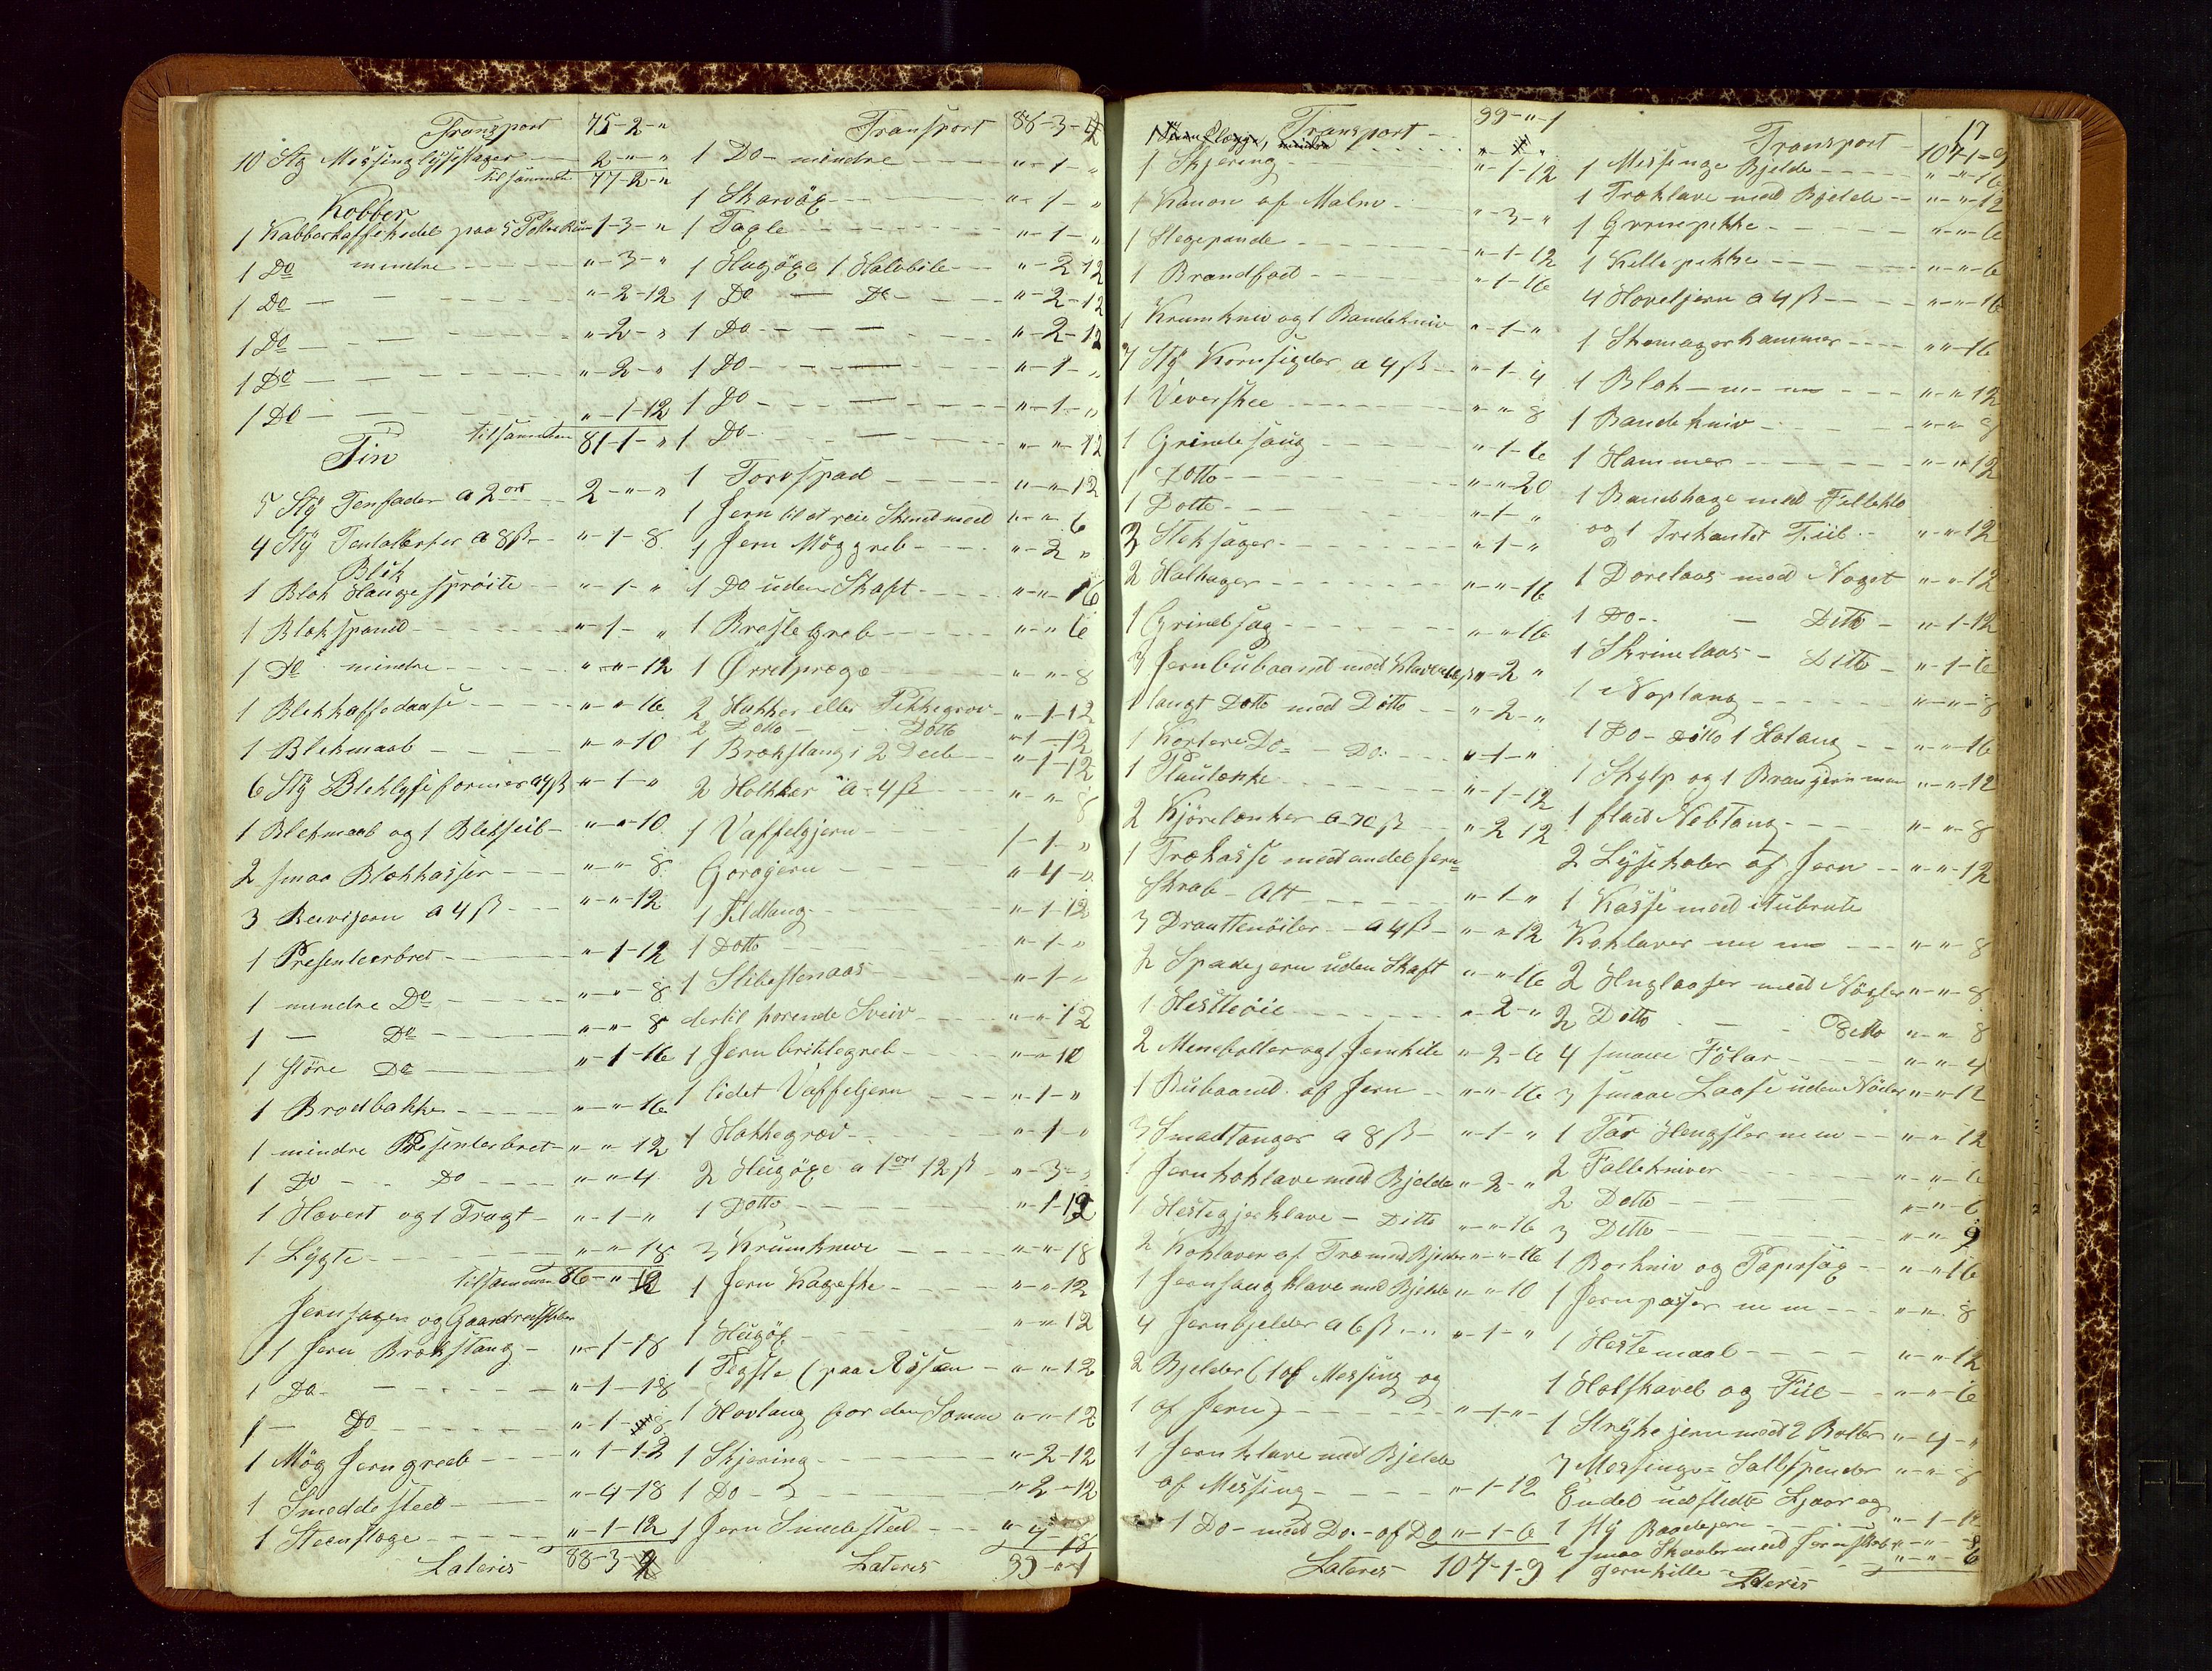 Transport 75-2-"
10 Stÿ Messinglÿsestager 2-"-"
tilsammen 77-2-"
Kobber
1 Kabberkaffekedel paa 5 Potters Rum 1-3-"
1 Do mindre "-3-"
1 Do "-2-12
1 Do "-2-"
1 Do "-2-"
1 Do "-1-12
tilsammen 81-1-"
Tin
5 Stÿ Tenfader a 2 ort 2-"-"
4 Stÿ Tentallerker a 8 ß "-1-8
Blik
1 Blek Hauge sprøite "-1-"
1 Blekspand "-1-"
1 Do mindre "-"-12
1 Blekkaffedaase "-"-16
1 Blekmaal "-"-10
6 Stÿ Bleklyseformer a 4 ß "-1-"
1 Blekmaal og 1 Bleksiil "-"-10
2 smaa Blekkasser "-"-8
3 Reevijern a 4 ß "-"-12
1 Presenteerbret "-1-12
1 mindre Do "-"-8
1 — Do "-"-8
1 större Do "-1-16
1 Brødbakke "-"-16
1 mindre Presenterbret "-"-12
1 Do Do "-"-4
1 Hævert og 1 Tragt "-1-"
1 Lygte "-"-18
tilsammen 86-"-12
Jernsager og Gaardredskaber
1 Jern Brækstang "-1-18
1 Do "-1-18
1 — Do "-1-8
1 Møg Jerngreeb "-1-12
1 Smeddested "-4-18
1 Steenslæge "-1-12
Lateris 88-3-2
Transport 88-3-2
1 Do mindre "-1-"
1 Skarøx "-1-"
1 Tagle "-1-"
1 Hugøxe 1 Halvbile "-2-12
1 Do — Do "-2-12
1 Do — "-2-12
1 Do — "-1-"
1 Do — "-1-"
1 Do — "-"-12
1 Torvspad "-"-12
1 Jern til at reie Skind med "-"-6
1 Jern Møggreb "-2-"
1 Do uden Skaft "-"-16
1 Bresle Greb "-"-6
1 Ørretpræge "-"-8
2 Hakker eller Pikkegrev "-1-12
2 Ditto Ditto "-1-12
1 Brækstang i 2 Dele "-1-12
2 Holkker a 4 ß "-"-8
1 Vaffeljern 1-1-"
Gorojern "-4-"
1 Ildtang "-1-12
1 Ditto "-1-"
1 Slibestenaas "-1-"
dertil hørende Sveiv "-"-12
1 Jern brikkegreb "-"-10
1 lidet Vaffeljern "-1-"
1 Hakkegrev "-1-"
2 Hugøxe a 1 ort 12 ß "-3-"
1 Ditto "-1-12
3 Krumknive "-"-18
1 Jern Kageske "-"-12
1 Hugøx "-"-12
1 Tegste (paa Aasen "-"-12
1 Hovtang for den Samme "-"-12
1 Skjæring "-2-12
1 Do "-2-12
1 Jern Smedested "-4-18
Lateris 99-"-1
Transport 99-"-1
1 Skjæring "-1-12
1 Kanon af Malm "-3-"
1 Stegepande "-1-12
1 Brandfad "-1-16
1 Krumkniv og 1 Bandekniv "-1-"
7 Stÿ Kornsigder a 4 ß "-1-4
1 Væverskee "-"-8
1 Grindesaug "-1-6
1 Ditto "-"-20
1 Ditto "-1-"
3 Steksager "-1-"
2 Hølhager "-"-16
1 Grindsag "-"-16
3 Jernbubaand med Klave "-2-"
1 langt Ditto med Ditto "-2-"
1 Kortere Do — Do "-1-"
1 Plaulænke "-1-12
2 Kjørelænker a 30 ß "-2-12
1 Trækasse med andel Jern=
skrab — Alt "-1-"
3 Drauttenøiler a 4 ß "-"-12
2 Spadejern uden Skaft "-"-16
1 Hesttøie "-2-"
2 Mineboller og 1 Jernkile "-2-6
1 Bubaand af Jern "-"-16
3 Smedtanger a 8 ß "-1-"
1 Jernkoklave med Bjelde "-2-"
1 Hestegjerklave — Ditto "-"-16
2 Koklaver af Træ med Bjelder "-"-16
1 Jernsaug klave med Bjelde "-"-10
4 Jernbjelder a 6 ß "-1-"
2 Bjelder (1 af Messing og
1 af Jern) "-1-"
1 Jernklave med Bjelde
af Messing "-1-12
1 Do med Do af Do "-1-6
Lateris 107-1-9
17
Transport 107-1-9
1 Messinge Bjelde "-"-16
1 Træklave med Bjelde "-"-12
1 Grensepikke "-"-6
1 Kellepikke "-"-6
4 Hoveljern a 4 ß "-"-16
1 Skomagerhammer "-"-16
1 Blok "-"-12
1 Bandekniv "-"-8
1 Hammer "-"-12
1 Bandhage med Filleklo
og 1 trekantet Fiil "-"-12
1 Dørelaas med Nøgel "-"-12
1 Do — Ditto "-1-12
1 Skrinelaas — Ditto "-1-6
1 Noptang "-"-8
1 Do Ditto 1 Holtang "-"-16
1 Skylp og 1 Branjern mm "-"-12
1 flad Nebtang "-"-8
2 Lÿsekoler af Jern "-"-12
1 Kasse med itubrute
Koklaver m m "-"-8
2 Hnglaaser med Nøgler "-"-8
2 Ditto — Ditto "-"-8
4 smaae Følar "-"-4
3 smaae Laase uden Nøeler "-"-12
1 Par Hengsler m m "-"-12
2 Fallekniver "-"-6
2 Ditto "-"-6
3 Ditto "-"-9
1 Borkniv og Tapersag "-"-16
1 Jernpasser m m "-"-8
1 Hestemaal "-"-12
1 Holskavel og Fiil "-"-6
1 Strÿkejern med 2 Bolter "-4-"
3 Messings= Salbspender "-"-8
Endel udslidte Ljaar og
1 Stÿ Baadejern "-1-12
2 smaa Skavler med Jernskob "-"-8
1 Jernkille "-"-6
Lateris